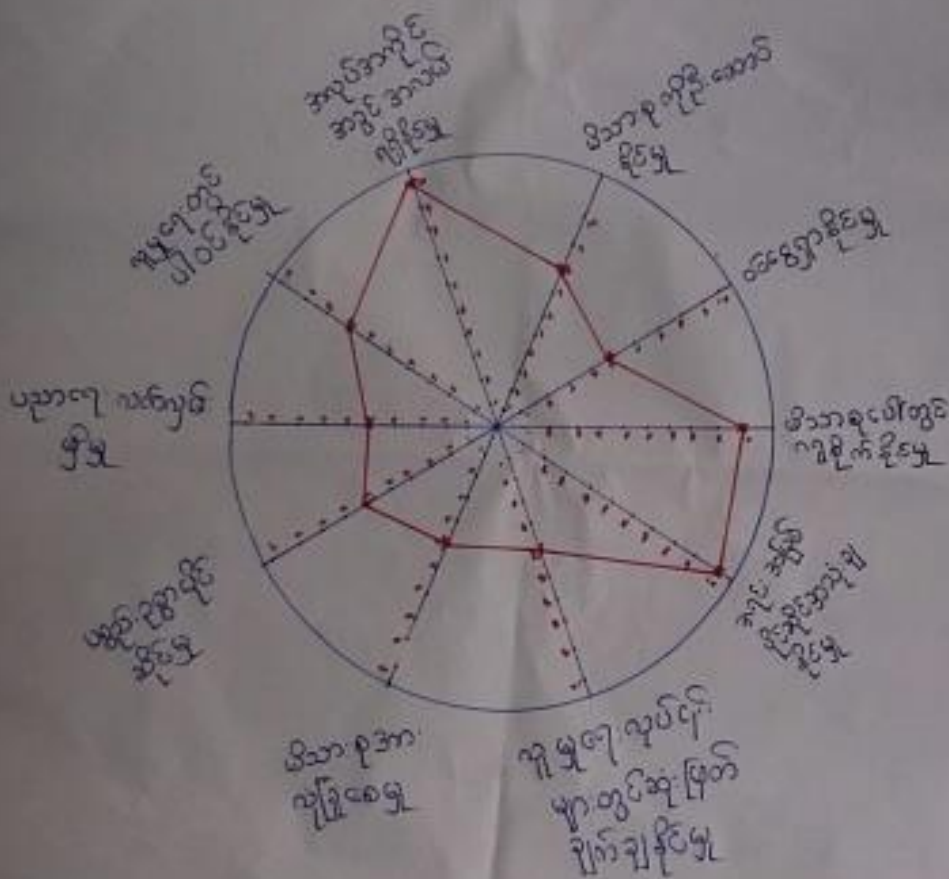 အလုပ်အကိုင်
အခွင့်အလမ်း
ရရှိနိုင်မှု
မိသားစုကိုဦးဆောင်
နိုင်မှု
ဝင်ငွေရှာနိုင်မှု
မိသားစုပေါ်တွင်
ဂရုစိုက်နိုင်မှု
အရင်းအမြစ်
ပိုင်ဆိုင်အသုံးချ
နိုင်မှု
လူမှုရေးလုပ်ငန်း
များတွင်ဆုံးဖြတ်
ချက်ချနိုင်မှု
မိသားစုအား
လုံခြုံစေမှု
ပစ္စည်းဥစ္စာပိုင်
ဆိုင်မှု
ပညာရေး လက်လှမ်း
မှီမှု
လူမှုရေးတွင်
ပါဝင်နိုင်မှု